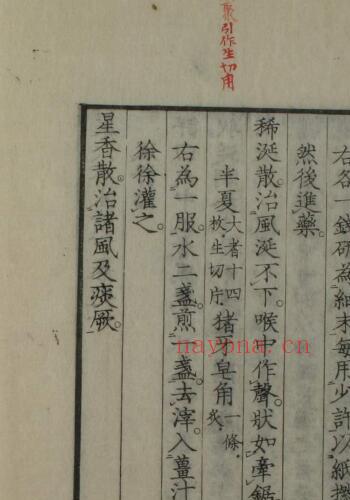 聚引作生切用
右各一錢研為細末每用少許以紙撚
然後進藥。
稀涎散。治風涎不下。喉中作聲。狀如牽鋸
半夏大者十四枚。生切片。猪牙皂角一條。炙。
右為一服。水二盞。煎一盞。去滓。入薑汁
徐徐灌之。
星香散。治諸風及痰厥。
naybna.cn